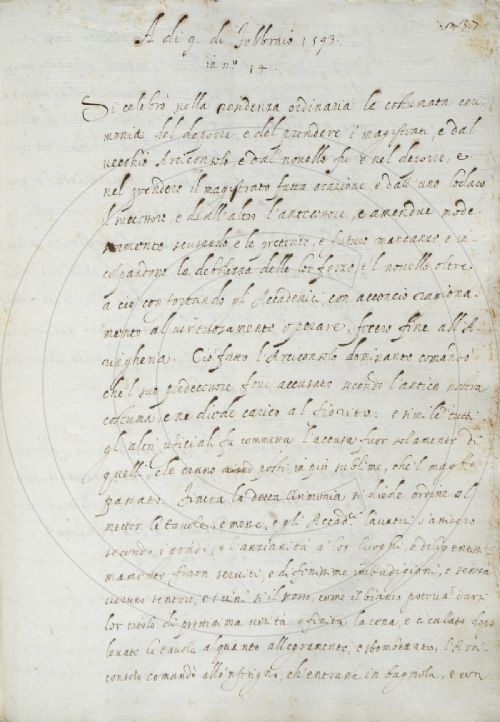 A di 9. di Febbraio 1593.
in n.º 14.
Si celebrò nella residenza ordinaria la costumata ceri
monia del deporre, e del prendere i magistrati, e dal
vecchio Arciconsolo, e dal novello fu e nel deporre, e
nel prendere il magistrato fatta orazione, e dall'uno lodato
il successore, e dall'altro l'antecessore, e amendue mode
stamente scusando, e le preterite, e future mancanze, e in
colpandone la debolezza delle lor forze, e 'l novello oltre
a ciò confortando gl'Accademici con acconcio ragiona
mento al virtuosamente operare, fecero fine all'A
ringheria. Ciò fatto l'Arciconsolo dominante comandò
che 'l suo predecessore fosse accusato secondo l'antica nostra
costuma, e ne diede carico al fiorito: e simile tutti
gl'altri uficiali fu commessa l'accusa fuor solamente di
quelli, che erano posti in più sublime, che 'l magistº
passato. Finita la detta Cerimonia si diede ordine al
metter le tavole, e mense, e gl'Accad.ci lavatisi s'assisero
secondo i gradi, e l'anzianità a' lor luoghi, e diligentis
simamente furon serviti, e di finissime imbandigioni, e senza
e i vini sì il rosso, come il bianco poteva darsi
lor titolo di e finita la cena, e calato dopo
levate le tavole alquanto allegramente, e sbombettato, l'Arci
consolo comandò allo 'nferigno, ch'entrasse in bugnola, e con